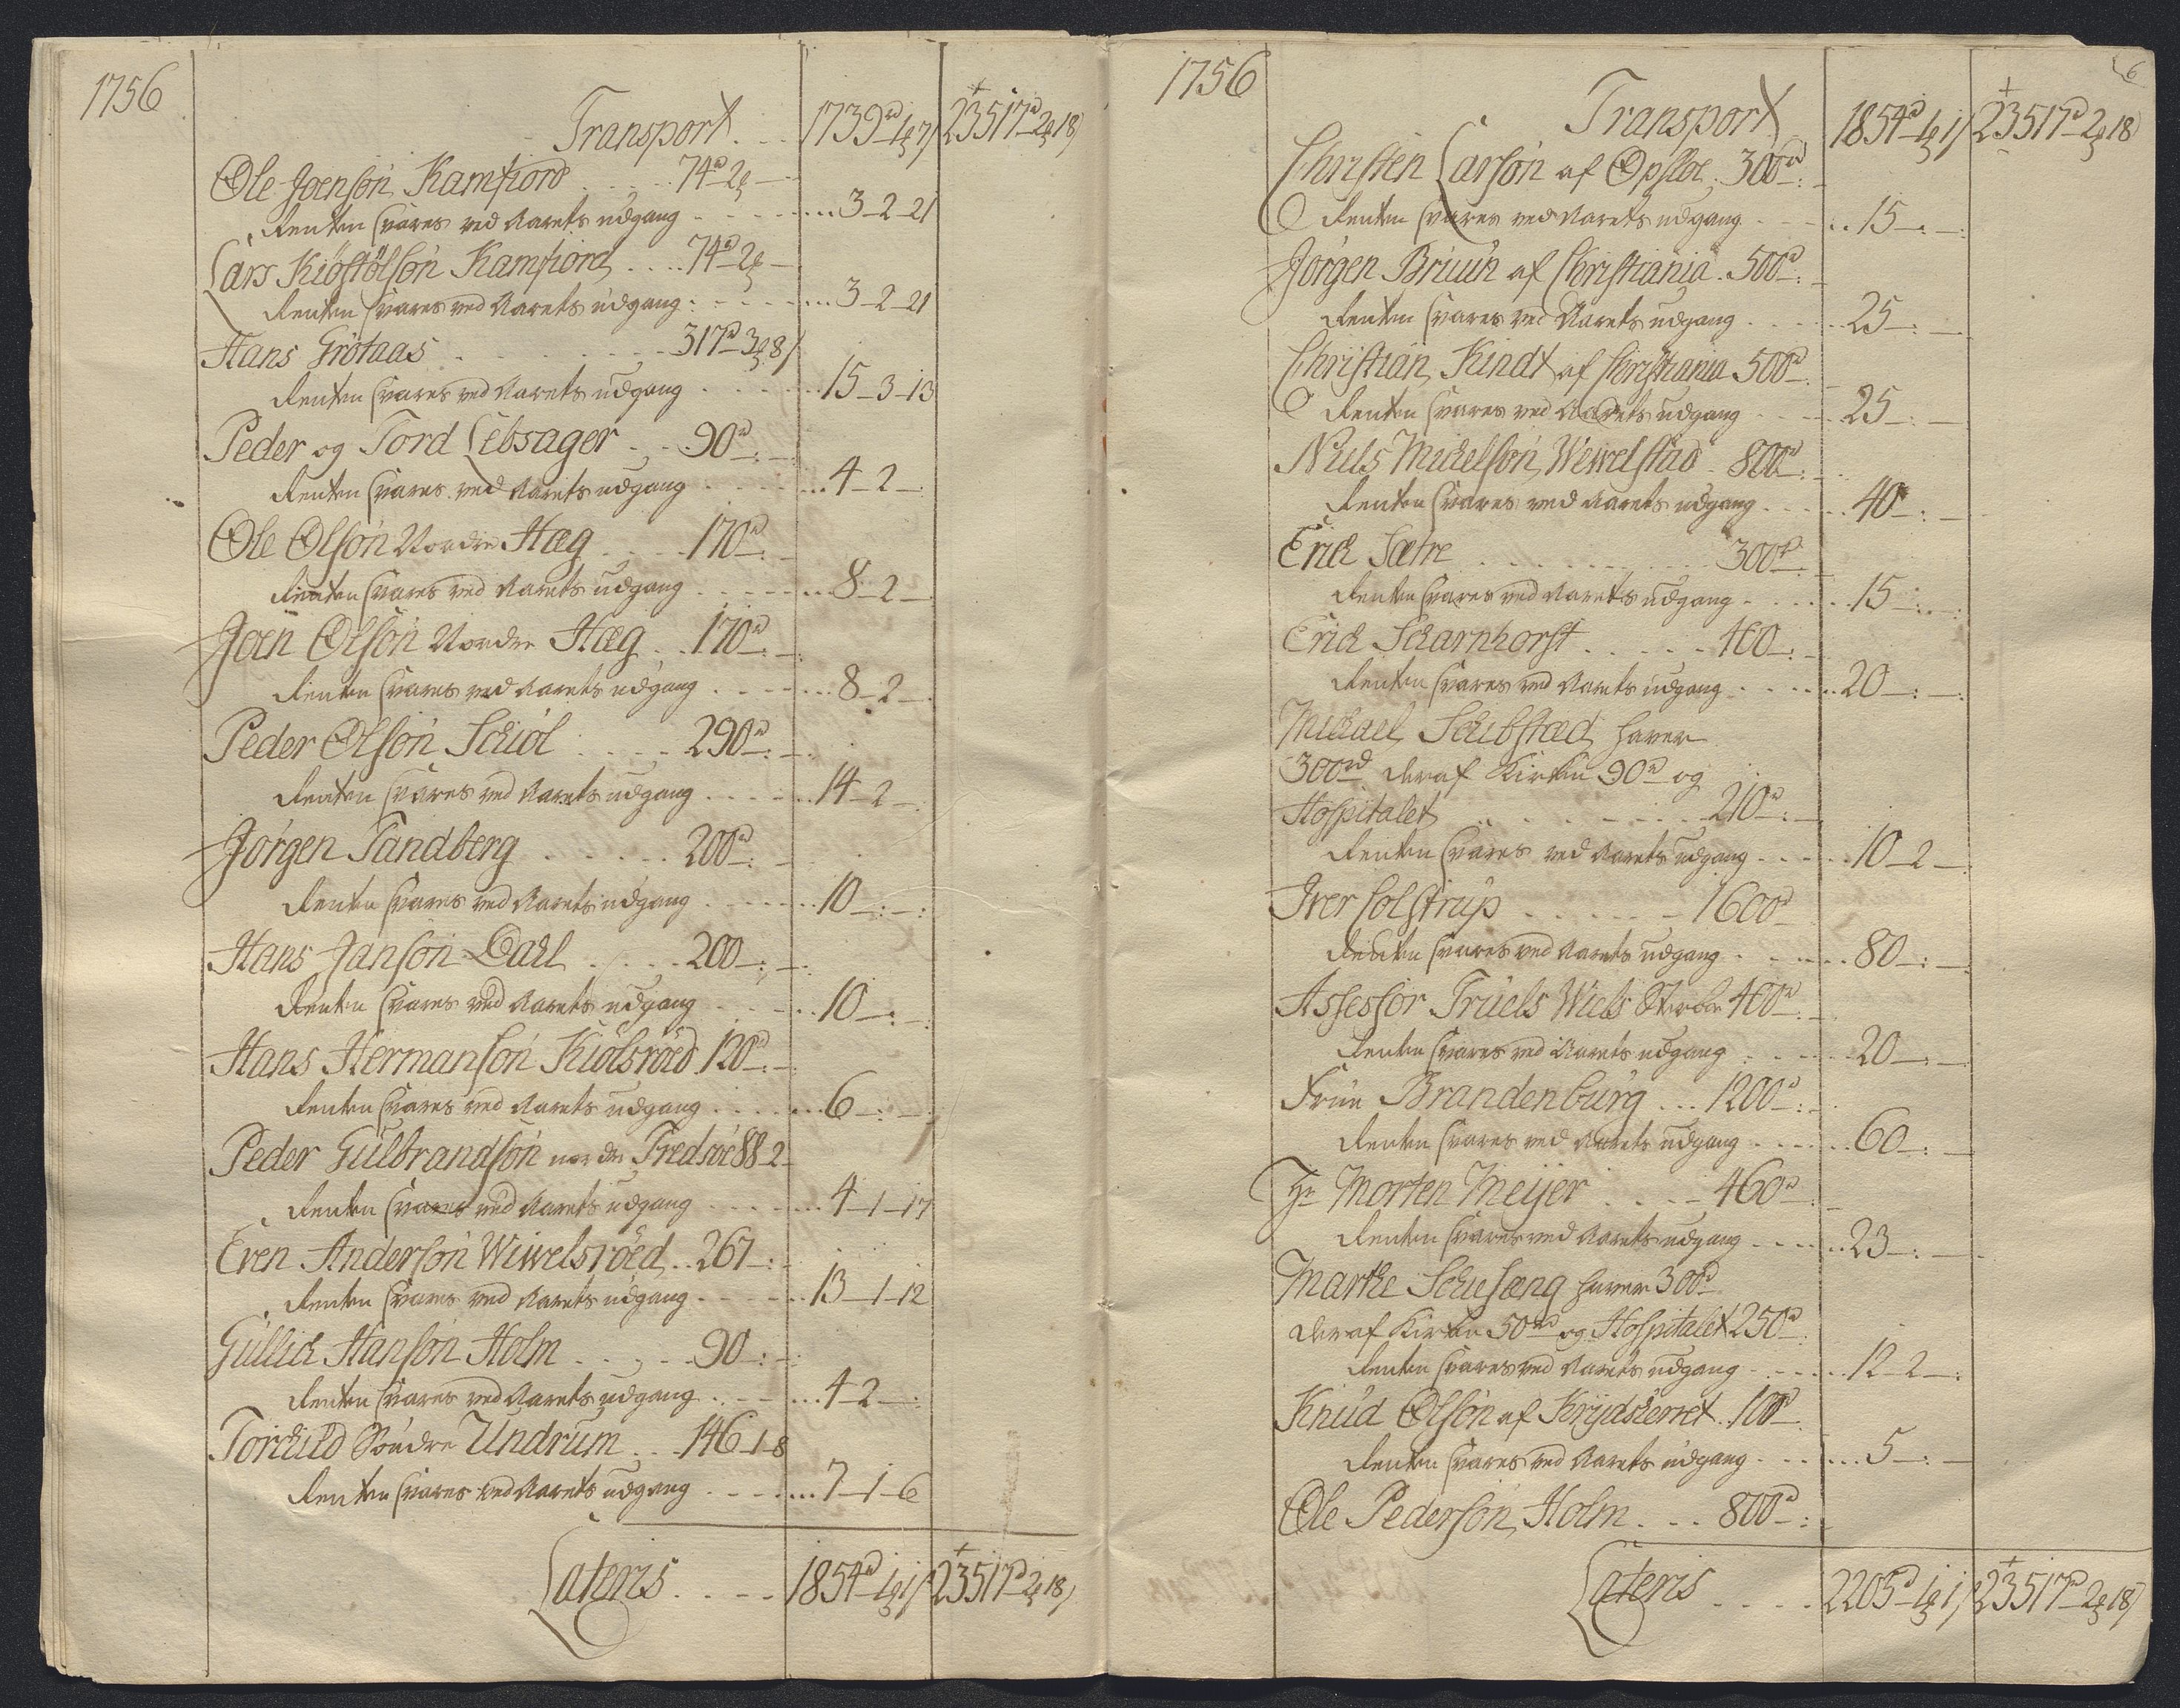 1756
Transport . . 1739rd 1ƶ 7s 23517rd 2ƶ 18s
Ole Joensøn Kamfiord . . . . 74rd 2ƶ —
Renten svares ved Aarets udgang . . . . 3 - 2 - 21
Lars Kiøstølsøn Kamfiord . . . . 74rd 2ƶ —
Renten svares ved Aarets udgang . . . . 3 - 2 - 21
Hans Grötaas . . . . 317rd 3ƶ 8s
Renten svares ved Aarets udgang . . . . 15 - 3 - 13
Peder og Tord Lebsager . . 90rd : —
Renten svares ved Aarets udgang . . . . 4 - 2 - :
Ole Olsøn Nordre Hæg . . . . 170rd : —
Renten svares ved Aarets udgang . . . . 8 - 2 -
Joen Olsøn Nordre Hæg . . 170rd : —
Renten svares ved Aarets udgang . . . . 8 - 2 - :
Peder Olsøn Schiøl . . . . 290rd : —
Renten svares ved Aarets udgang . . . . 14 - 2 - :
Jørgen Sandberg . . . . 200rd : —
Renten svares ved Aarets udgang . . . . 10 - : - :
Hans Jansøn Dahl . . . . 200 - : - :
Renten svares ved Aarets udgang . . . . 10 - : - :
Hans Hermansøn Kiølsrød 120rd : -
Renten svares ved Aarets udgang . . . . 6 - : - :
Peder Gulbrandsøn nordre Fredsøe 88 - 2 -
Renten svares ved Aarets udgang . . . . 4 - 1 - 17
Even Andersøn Wiwelsrøed . . 267 - : -
Renten svares ved Aarets udgang . . . . 13 - 1 - 12
Gullich Hansøn Holm . . . . 90 - : - :
Renten svares ved Aarets udgang . . . . 4 - 2 - :
Torchild Søndre Undrum . . . 146 - 1 - 8
Renten svares ved Aarets udgang . . . . 7 - 1 - 6
Lateris . . . . 1854rd 1ƶ 1s 23517rd 2ƶ 18s
6
1756
Transport 1854rd 1ƶ 1s 23517rd 2ƶ 18s
Christen Larsøn af Opsloe . 300rd : -
Renten svares ved Aarets udgang . . . . 15 - : - :
Jørgen Bruun af Christiania . 500rd : -
Renten svares ved Aarets udgang . . . . 25 - : -
Christian Kindt af Christiania 500rd : -
Renten svares ved Aarets udgang . . . . 25 - : -
Niels Michelsøn Wiwelstad . 800rd : -
Renten svares ved Aarets udgang . . . . 40 - : -
Erich Sætre . . . . 300rd : -
Renten svares ved Aarets udgang . . . . 15 - : - :
Erich Scharnhorst . . . . 400 - : -
Renten svares ved Aarets udgang . . . . 20 - : - :
Michael Schibstad haver
300rd deraf Kirken 90rd og
Hospitalet . . . . 210rd : -
Renten svares ved Aarets udgang . . . . 10 - 2 - :
Iver Colstrup . . . . 1600rd
Renten svares ved Aarets udgang . . . . 80 - : -
Assessor Truels Wiels 400rd : -
Renten svares ved Aarets udgang . . . . 20 - : -
Frue Brandenburg . . . 1200rd : -
Renten svares ved Aarets udgang . . . . 60 - : -
Hr Morten Meijer . . . . 460rd : -
Renten svares ved Aarets udgang . . . . 23 - : -
Marthe Schiesæng haver 300rd
deraf Kirken 50rd og Hospitalet 250rd :
Renten svares ved Aarets udgang . . . . 12 - 2 - :
Knud Olsøn af . . 100rd
Renten svares ved Aarets udgang . . . . 5 - : -
Ole Pedersøn Holm . . . 800rd : -
Lateris . . . . 2205rd 1ƶ 1s 23517rd 2ƶ 18s